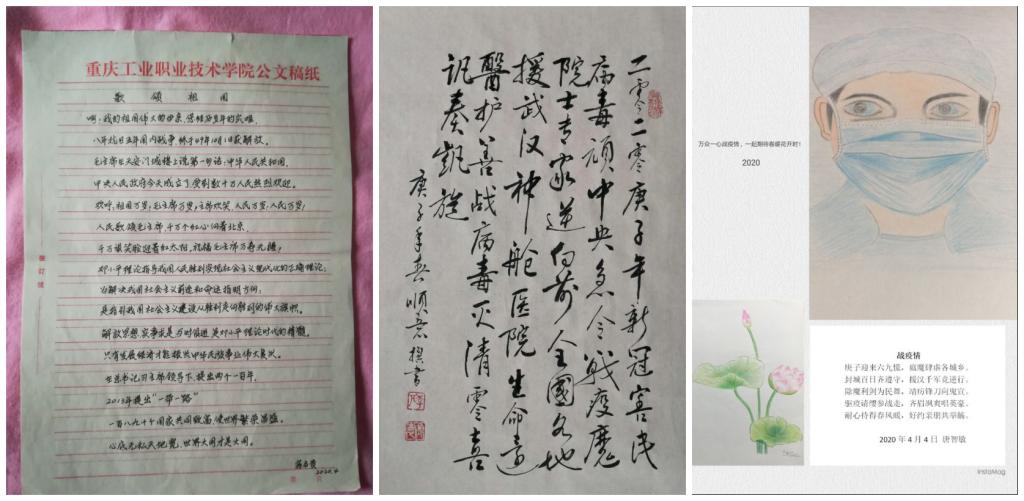 重庆工业职业技术学院公文稿纸
歌颂祖国
啊，我的祖国伟大的母亲，曾经历百年的灾难，
八年抗日三年国内战争，终于49年10月1日获解放。
毛主席在天安门城楼上说第一句话：中华人民共和国，
中央人民政府今天成立了受到数千万人民热烈欢迎。
欢呼，祖国万岁，毛主席万岁；主席欢笑，人民万岁，人民万岁；
人民歌颂毛主席，千万个红心向着北京，
千万张笑脸迎着红太阳，祝福毛主席万寿无疆；
邓小平理论指导我国人民胜利实现社会主义现代化的正确理论；
为解决我国社会主义前途和命运指明方向，
是指引我国社会主义建设从胜利走向胜利的伟大旗帜。
解放思想，实事求是，与时俱进是邓小平理论时代的精髓。
只有发展经济才能振兴中华民族事业伟大复兴。
在总书记习主席领导下，提出两个一百年，
2013年提出“一带一路”
一百八九十个国家共同致富，使世界繁荣富强。
心底无私天地宽，世界大同才是大同。
2020.4
装订线
二零二零庚子年新冠害民
病毒顽中央急令战疫魔
院士专家逆向前全國各地
援武汉神舱医院生命逵
醫护善战病毒灭清零喜
讯奏凯旋
庚子年春顺意撰書
万众一心战疫情，一起期待春暖花开时！
2020
战疫情
庚子迎来六九慌，瘟魔肆虐各城乡。
封城百日齐遵守，援汉千军竞逆行。
除魔利剑为民舞，靖疠锋刀向鬼宣。
驱疫请缨参战走，齐眉飒爽唱英豪。
耐心待得春风暖，好约亲朋共举觞。
2020 年 4 月 4 日 唐智敏
InstaMag